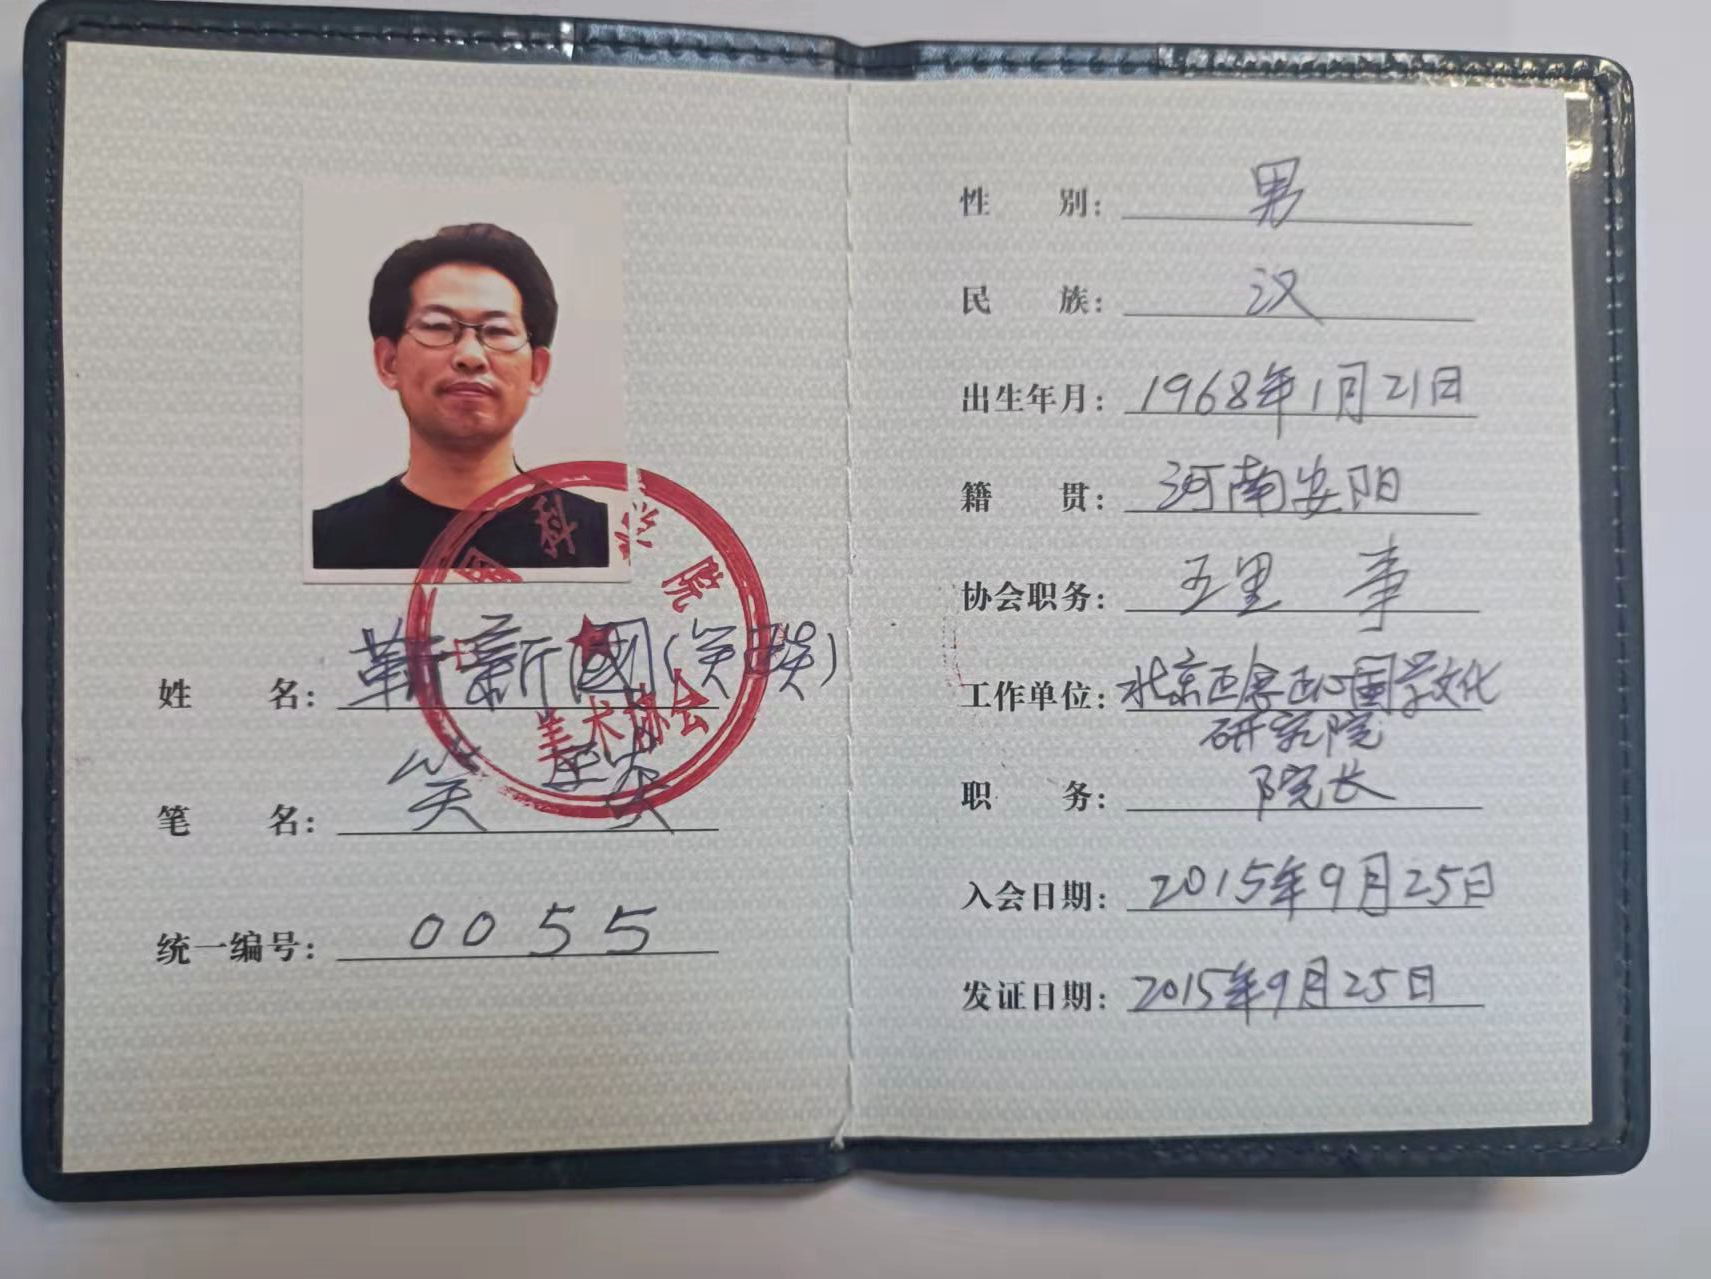 中国科学院
美术协会
姓 名: 靳新國(笑琰)
笔 名: 笑琰
统一编号: 0055
性 别: 男
民 族: 汉
出生年月: 1968年1月21日
籍 贯: 河南安阳
协会职务: 理事
工作单位: 北京正念正心国学文化
研究院
职 务: 院长
入会日期: 2015年9月25日
发证日期: 2015年9月25日